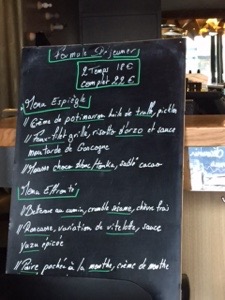 Formule Déjeuner
2 Temps 18€
complet 22€
Menu Espiègle
// Crème de potimarron huile de truffe, pickles
// Faux-filet grillé, risotto d'orzo et sauce
moutarde de Gascogne
// Mousse choco blanc/tonka, sablé cacao
Menu Effronté
// Betterave au cumin, crumble sésame, chèvre frais
// Rascasse, variation de vitelotte, sauce
yuzu épicée
// Poire pochée à la menthe, crème de menthe